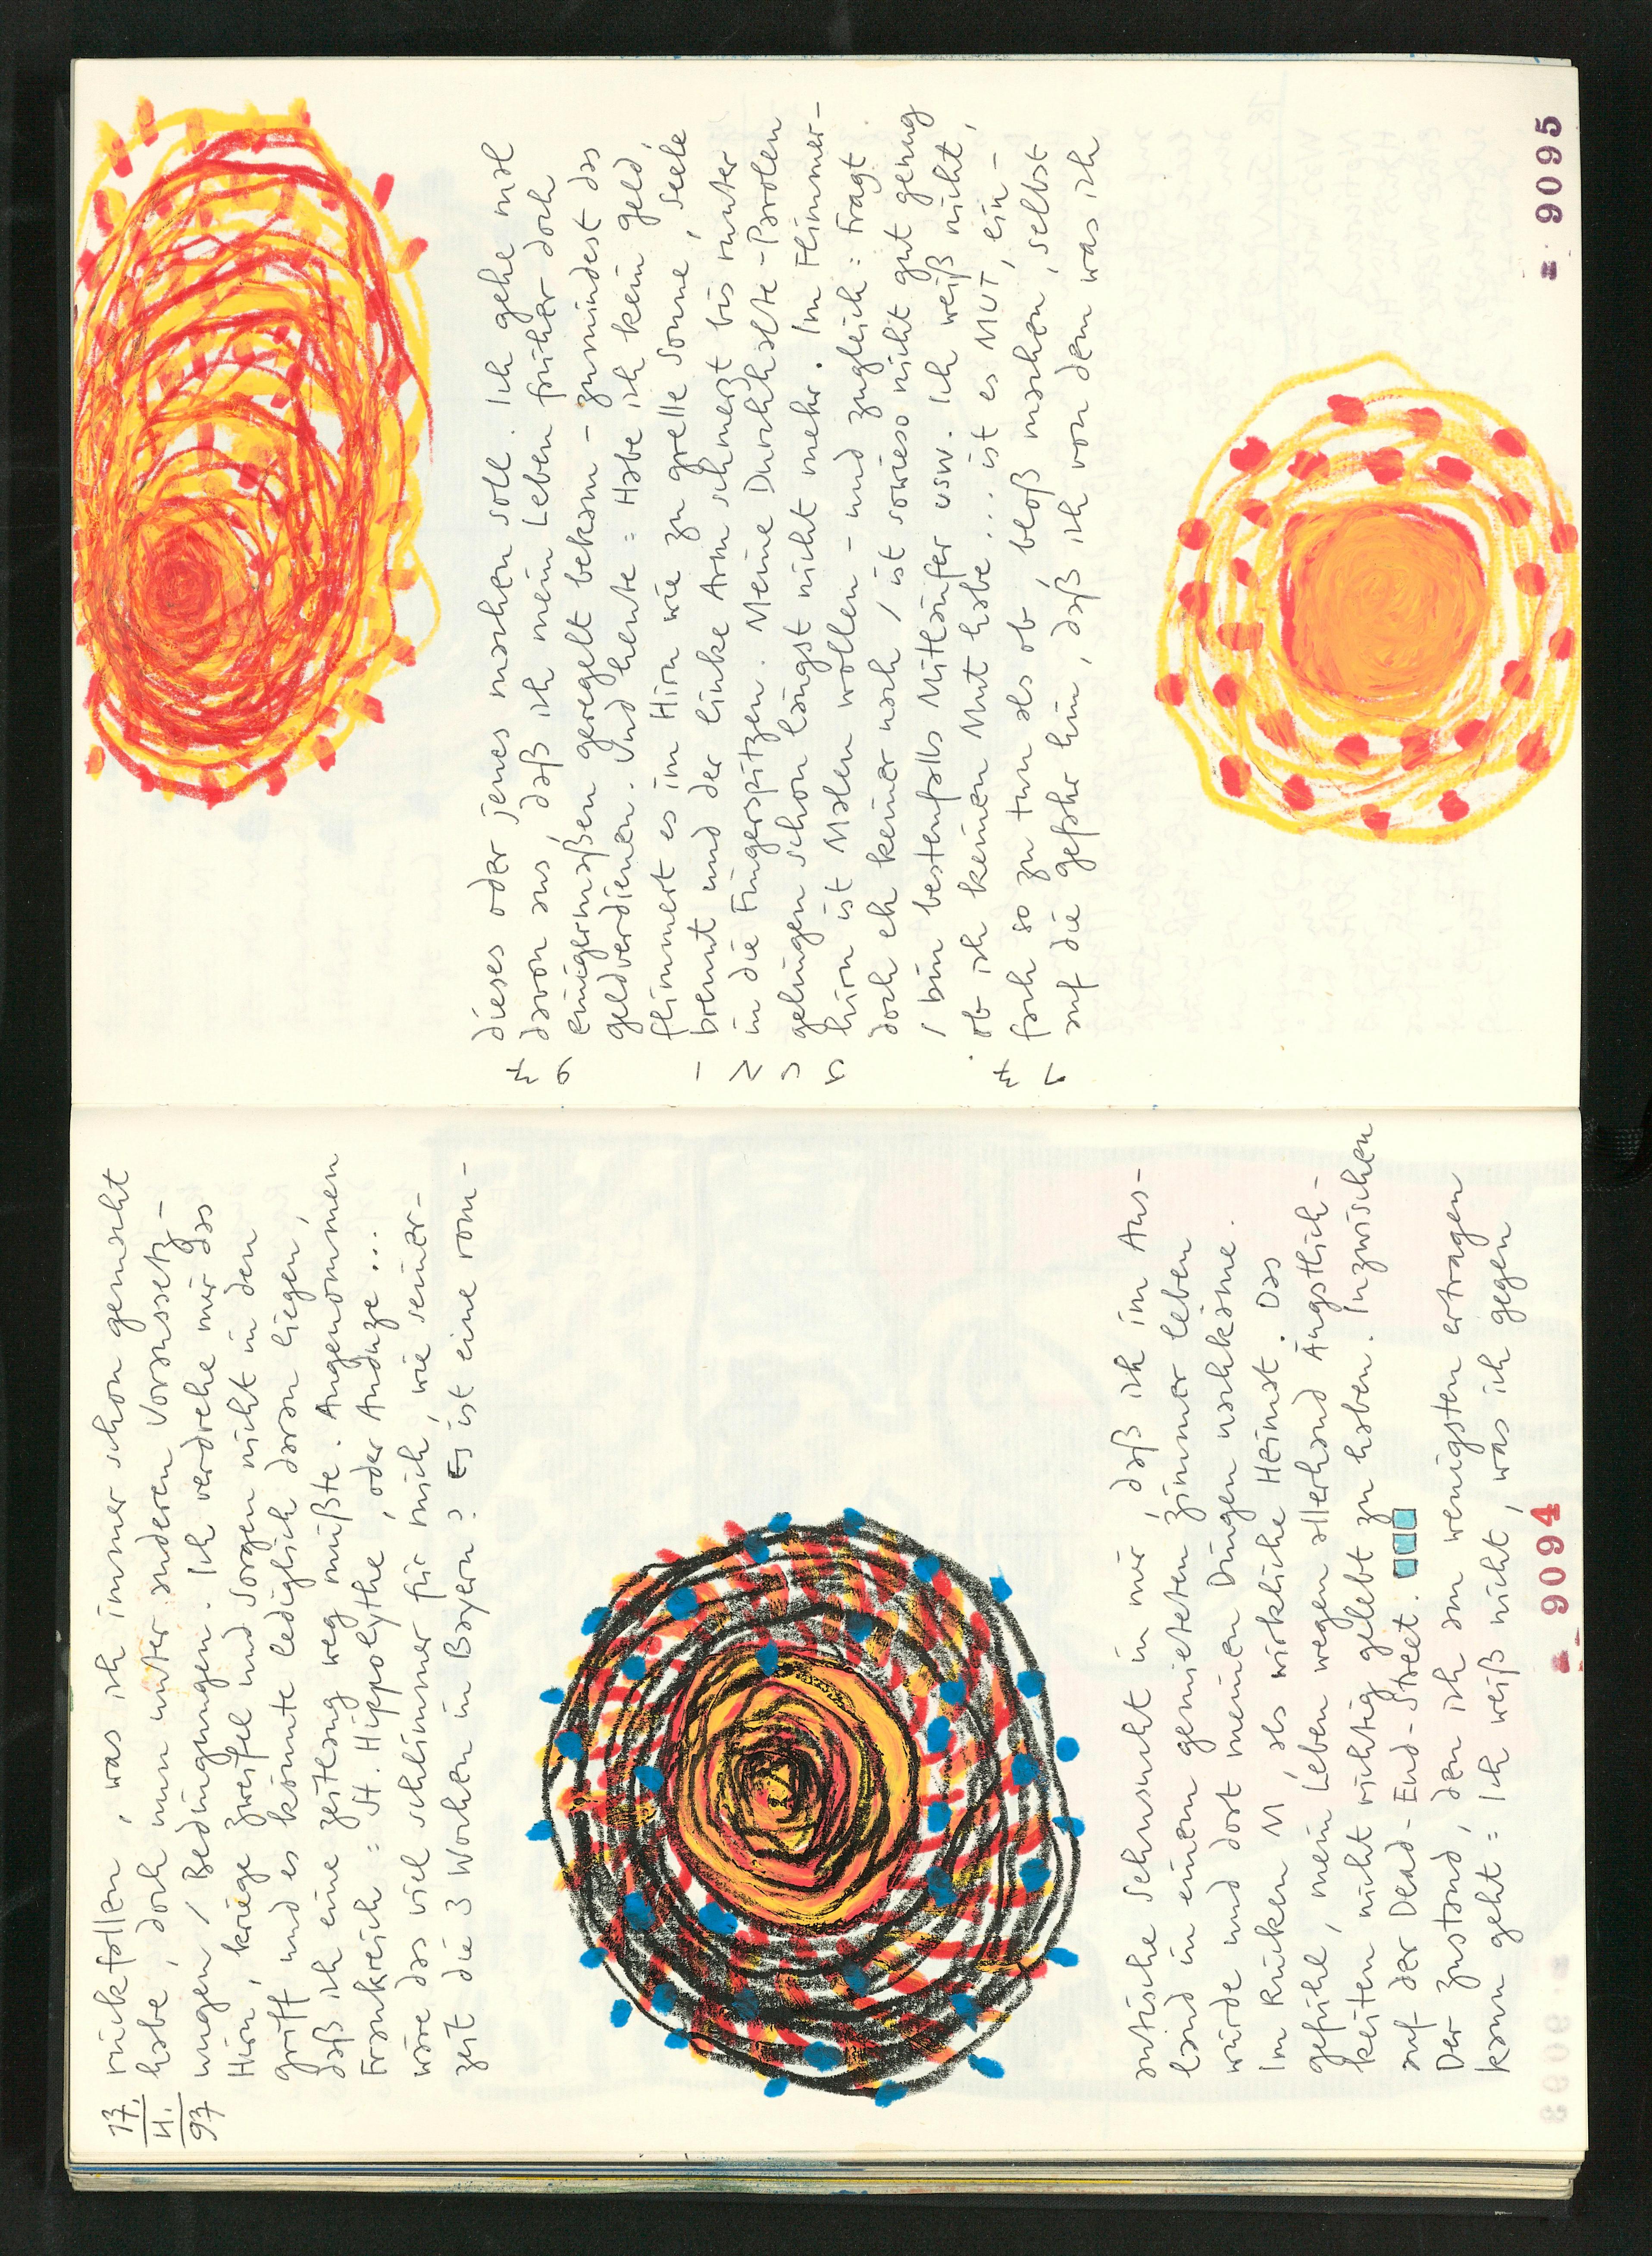 17.
4.
97
rückfallen, was ich immer schon gemacht
habe, doch nun unter anderen Voraussetz-
ungen / Bedingungen. Ich verdrehe mir das
Hirn, kriege Zweifel und Sorgen nicht in den
Griff und es könnte lediglich daran liegen,
daß ich eine Zeitlang weg müßte. Angenommen
Frankreich: St. Hippolythe, oder Anduze...
wäre das viel schlimmer für mich, wie seiner-
zeit die 3 Wochen in Bayern? Es ist eine rom-
antische Sehnsucht in mir, daß ich im Aus-
land in einem gemieteten Zimmer leben
würde und dort meinen Dingen nachkäme.
Im Rücken M, als wirkliche Heimat. Das
Gefühl, mein Leben wegen allerhand Ängstlich-
keiten nicht richtig gelebt zu haben. Inzwischen
auf der Dead-End-Street.
Der Zustand, den ich am wenigsten ertragen
kann geht: Ich weiß nicht, was ich gegen
9094
dieses oder jenes machen soll. Ich gehe mal
davon aus, daß ich mein Leben früher doch
einigermaßen geregelt bekam - zumindest das
Geldverdienen. Und heute: Habe ich kein Geld,
flimmert es im Hirn wie zu grelle Sonne, Seele
brennt und der linke Arm schmerzt bis runter
in die Fingerspitzen. Meine Durchhalte-Parolen
gelingen schon längst nicht mehr. Im Flimmer-
hirn ist Malen wollen - und zugleich: Fragt
doch eh keiner nach / ist sowieso nicht gut genug
/ bin bestenfalls Mitläufer usw. Ich weiß nicht,
ob ich keinen Mut habe... ist es MUT, ein-
fach so zu tun als ob, bloß machen, selbst
auf die Gefahr hin, daß ich von dem was ich
9095